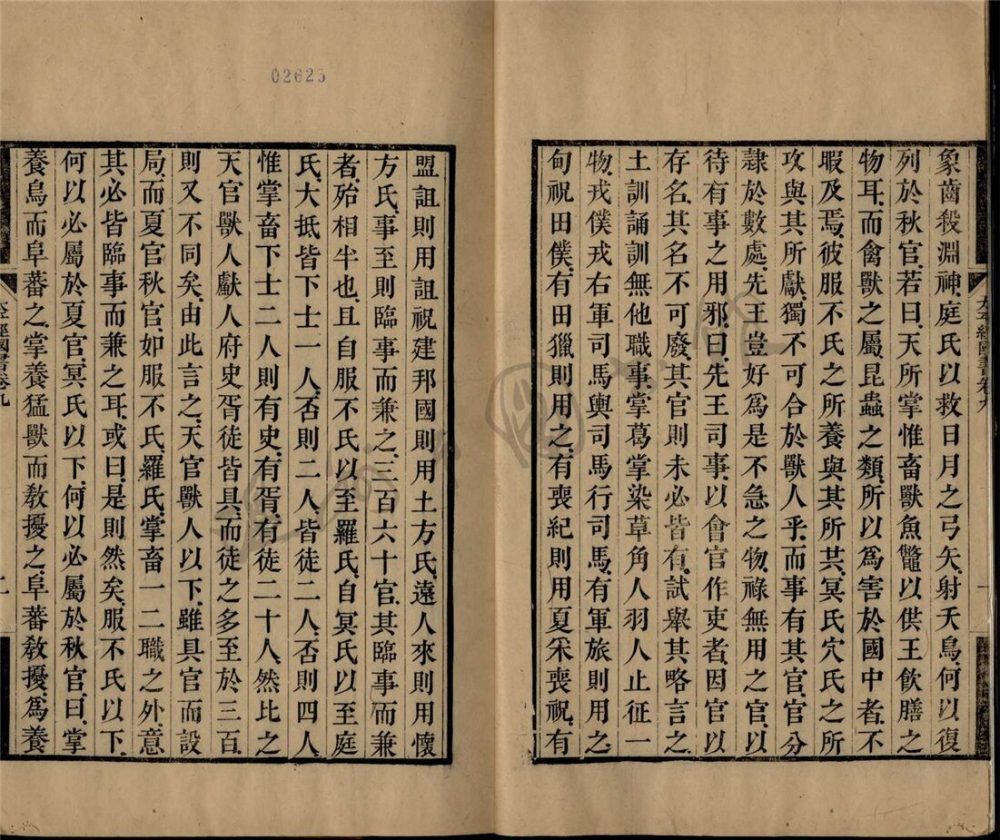 象齒殺淵神庭氏以救日月之弓矢射夭鳥何以復
列於秋官若曰天所掌惟畜獸魚鼈以供王飲膳之
物耳而禽獸之屬昆蟲之類所以爲害於國中者不
暇及焉彼服不氏之所養與其所共冥氏穴氏之所
攻與其所獻獨不可合於獸人乎而事有其官官分
隷於數處先王豈好爲是不急之物祿無用之官以
待有事之用邪曰先王司事以會官作吏者因官以
存名其名不可廢其官則未必皆有試舉其略言之
土訓誦訓無他職事掌葛掌染草角人羽人止征一
物戎僕戎右軍司馬輿司馬行司馬有軍旅則用之
甸祝田僕有田獵則用之有喪紀則用夏采喪祝有
太平經國書卷九
一
02625
盟詛則用詛祝建邦國則用土方氏遠人來則用懷
方氏事至則臨事而兼之三百六十官其臨事而兼
者殆相半也且自服不氏以至羅氏自冥氏以至庭
氏大抵皆下士一人否則二人皆徒二人否則四人
惟掌畜下士二人則有史有胥有徒二十人然比之
天官獸人獻人府史胥徒皆具而徒之多至於三百
則又不同矣由此言之天官獸人以下雖具官而設
局而夏官秋官如服不氏羅氏掌畜一二職之外意
其必皆臨事而兼之耳或曰是則然矣服不氏以下
何以必屬於夏官冥氏以下何以必屬於秋官曰掌
養鳥而阜蕃之掌養猛獸而敎擾之阜蕃敎擾爲養
太平經國書卷九
二